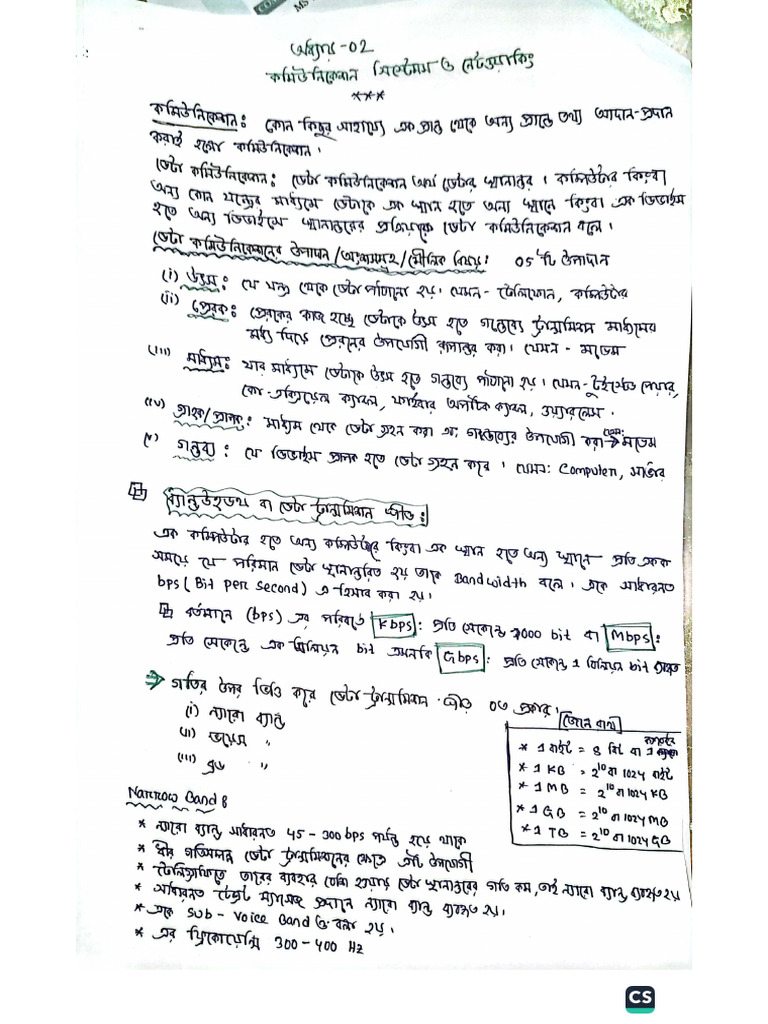 অধ্যায়-০২
কমিউনিকেশন সিস্টেমস ও নেটওয়ার্কিং
***
কমিউনিকেশন: কোন কিছুর সাহায্যে এক প্রান্ত থেকে অন্য প্রান্তে তথ্য আদান-প্রদান
করাই হলো কমিউনিকেশন।
ডেটা কমিউনিকেশন: ডেটা কমিউনিকেশন অর্থ ডেটার স্থানান্তর। কম্পিউটার কিংবা
অন্য কোন যন্ত্রের মাধ্যমে ডেটাকে এক স্থান হতে অন্য স্থানে কিংবা এক ডিভাইস
হতে অন্য ডিভাইসে স্থানান্তরের প্রক্রিয়াকে ডেটা কমিউনিকেশন বলে।
ডেটা কমিউনিকেশনের উপাদান/অংশসমূহ/মৌলিক বিষয়: ০5 টি উপাদান
(i) উৎস: যে যন্ত্র থেকে ডেটা পাঠানো হয়। যেমন- টেলিফোন, কম্পিউটার
(ii) প্রেরক: প্রেরকের কাজ হচ্ছে ডেটাকে উৎস হতে গন্তব্যে ট্রান্সমিশন মাধ্যমের
মধ্য দিয়ে প্রেরনের উপযোগী রূপান্তর করা। যেমন- মডেম
(iii) মাধ্যম: যার মাধ্যমে ডেটাকে উৎস হতে গন্তব্যে পাঠানো হয়। যেমন- টুইস্টেড পেয়ার,
কো-এক্সিয়েল ক্যাবল, ফাইবার অপটিক ক্যাবল, ওয়্যারলেস।
(iv) গ্রাহক/প্রাপক: মাধ্যম থেকে ডেটা গ্রহন করা এবং গন্তব্যের উপযোগী করা → মডেম
(v) গন্তব্য: যে ডিভাইস প্রাপক হতে ডেটা গ্রহন করে। যেমন: Computer, সার্ভার
ব্যান্ডউইডথ বা ডেটা ট্রান্সমিশন স্পীড:
এক কম্পিউটার হতে অন্য কম্পিউটারে কিংবা এক স্থান হতে অন্য স্থানে প্রতি একক
সময়ে যে পরিমান ডেটা স্থানান্তরিত হয় তাকে Bandwidth বলে। একে সাধারনত
bps (Bit per Second) এ হিসাব করা হয়।
বর্তমানে (bps) এর পরিবর্তে Kbps: প্রতি সেকেন্ডে 1000 bit বা Mbps:
প্রতি সেকেন্ডে এক মিলিয়ন bit এমনকি Gbps: প্রতি সেকেন্ডে 1 বিলিয়ন bit
⇒ গতির উপর ভিত্তি করে ডেটা ট্রান্সমিশন স্পীড ০৩ প্রকার।
(i) ন্যারো ব্যান্ড
(ii) ভয়েস "
(iii) ব্রড "
জেনে রাখ
* 1 বাইট = 8 বিট বা 1
* 1 KB = 2^10 বা 1024 বাইট
* 1 MB = 2^10 বা 1024 KB
* 1 GB = 2^10 বা 1024 MB
* 1 TB = 2^10 বা 1024 GB
Narrow Band :
* ন্যারো ব্যান্ড সাধারনত 45 - 300 bps পর্যন্ত হয়ে থাকে
* ধীর গতিসম্পন্ন ডেটা ট্রান্সমিশনের ক্ষেত্রে এটি উপযোগী
* টেলিগ্রাফিতে তারের ব্যবহার বেশি হওয়ায় ডেটা স্থানান্তরের গতি কম, তাই ন্যারো ব্যান্ড ব্যবহৃত হয়
* সাধারনত টেক্সট ম্যাসেজ প্রদানে ন্যারো ব্যান্ড ব্যবহৃত হয়।
* একে Sub - Voice Band ও বলা হয়।
* এর ফ্রিকোয়েন্সি 300 - 400 Hz
CS